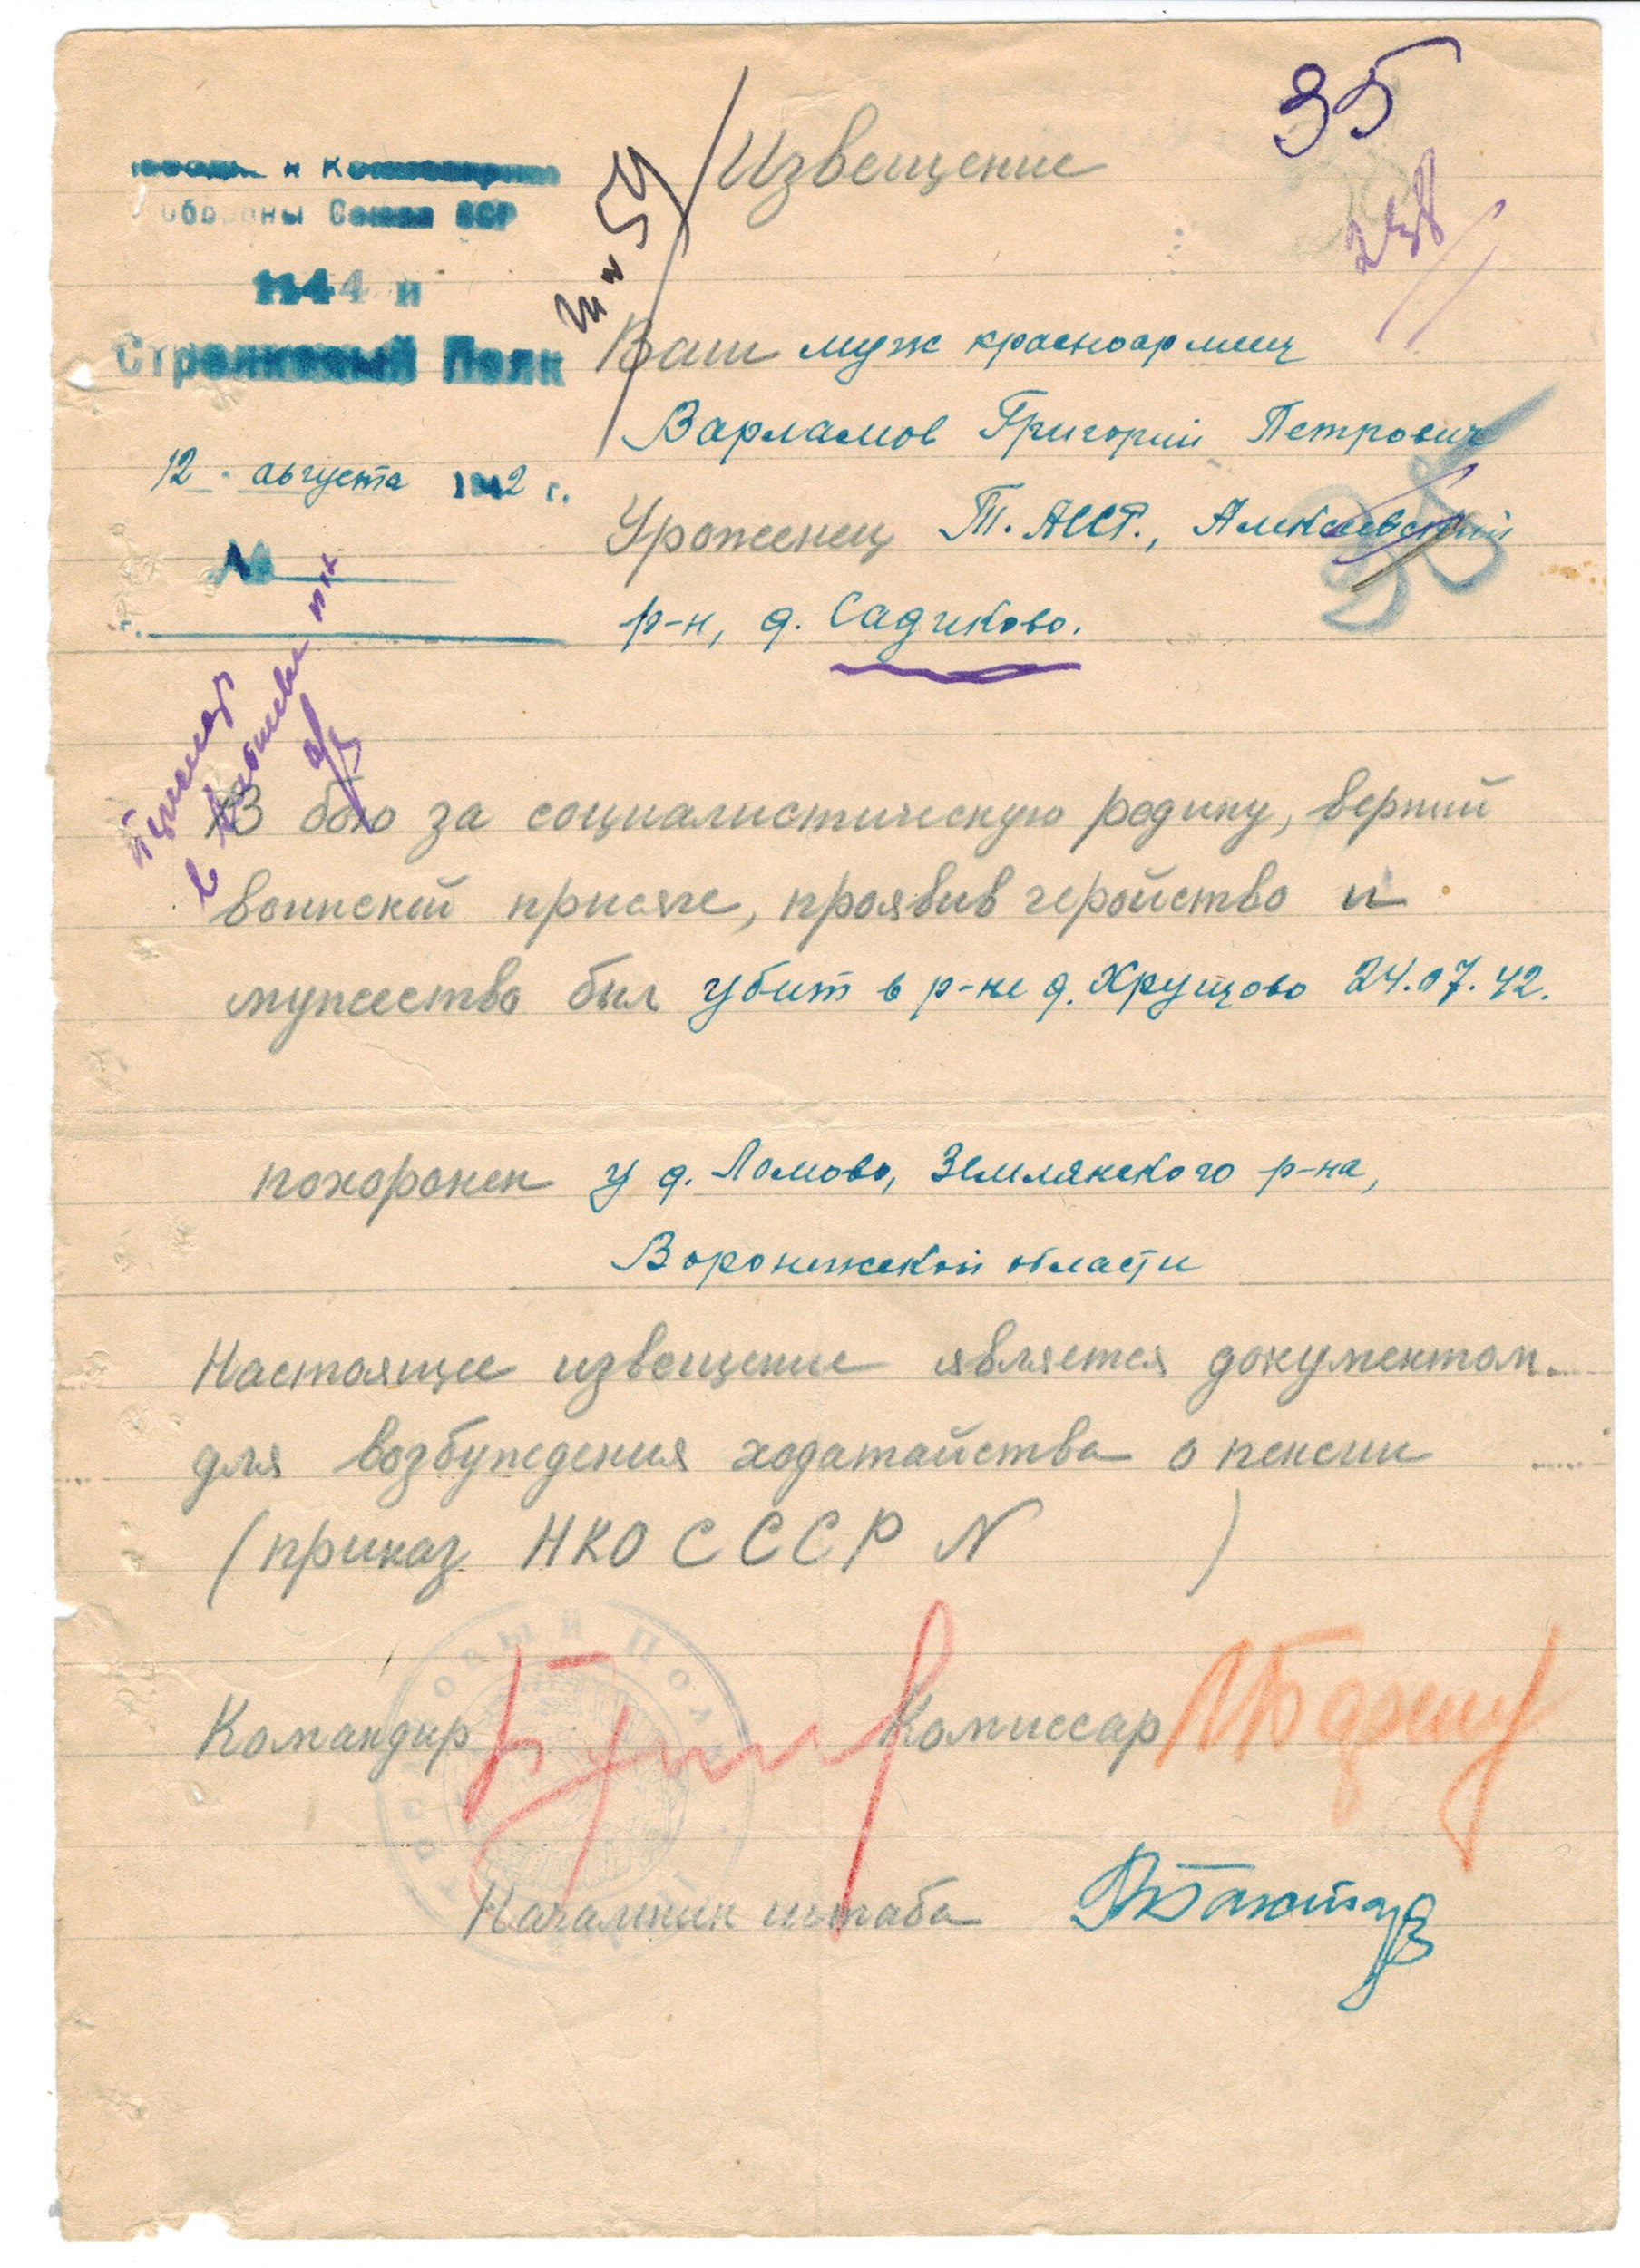 Извещение
35
238
обороны Союза ССР
1144 й
Стрелковый Полк
12 августа 1942 г.
№
Ваш муж красноармеец
Варламов Григорий Петрович
Уроженец Т. АССР., Алексеевский
р-н, д. Садиково.
В бою за социалистическую родину, верный
воинской присяге, проявив геройство и
мужество был убит в р-не д. Хрущово 24.07.42.
похоронен у д. Ломово, Землянского р-на,
Воронежской области
Настоящее извещение является документом
для возбуждения ходатайства о пенсии
(приказ НКО СССР N )
Командир Комиссар
Начальник штаба